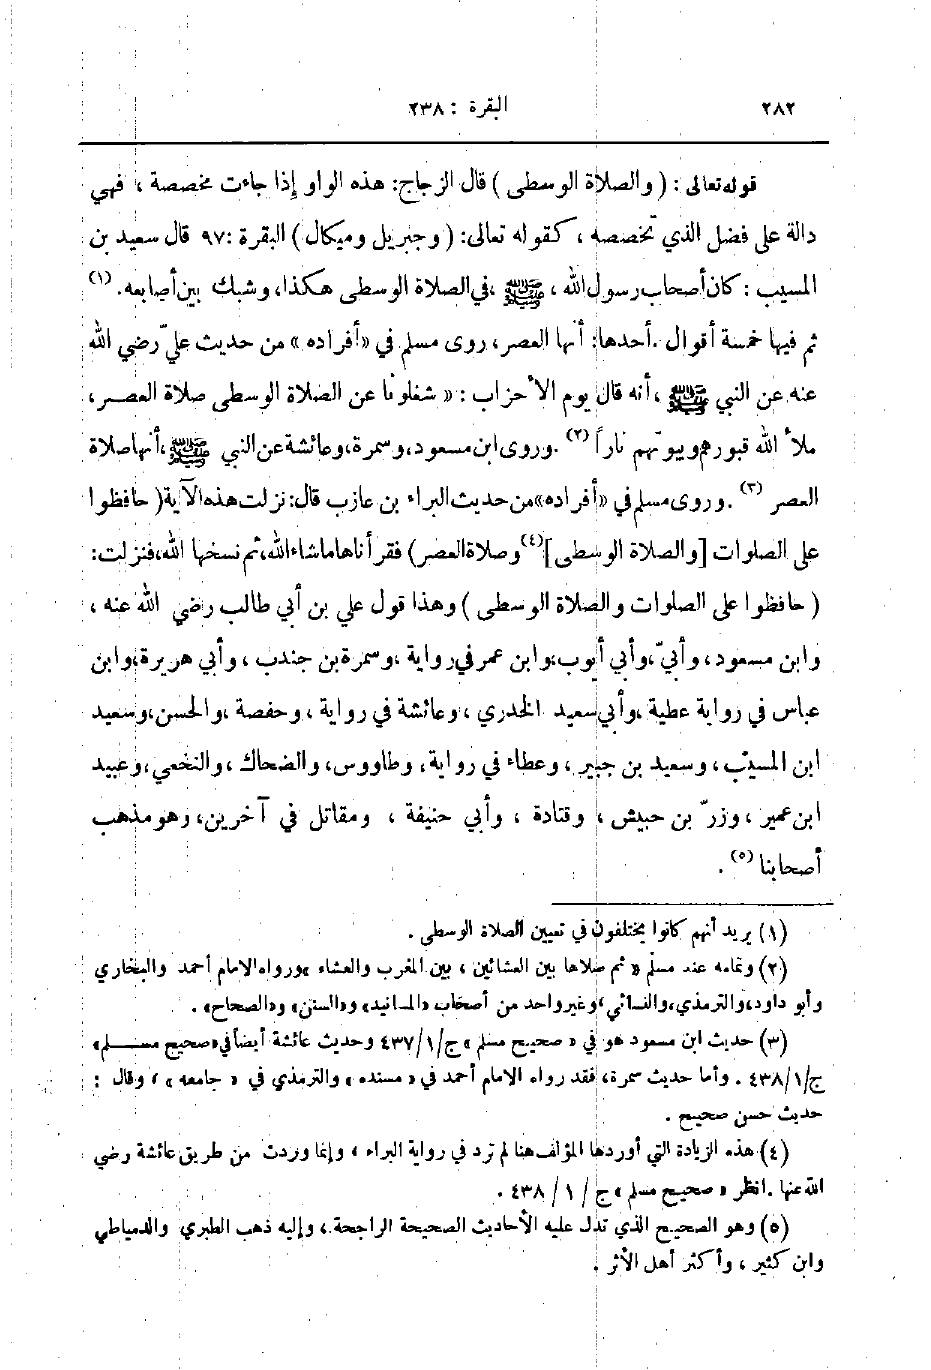 ٢٨٢
البقرة : ٢٣٨
قوله تعالى : ( والصلاة الوسطى ) قال الزجاج: هذه الواو إذا جاءت مخصصة ، فهي
دالة على فضل الذي تخصصه ، كقوله تعالى: ( وجبريل وميكال ) البقرة :٩٧ قال سعيد بن
المسيب : كان أصحاب رسول الله ، ﷺ ،في الصلاة الوسطى هكذا، وشبك بين أصابعه. (١)
ثم فيها خمسة أقوال .أحدها: أنها العصر، روى مسلم في «أفراده » من حديث عليّ رضي الله
عنه عن النبي ﷺ ، أنه قال يوم الأحزاب : « شغلونا عن الصلاة الوسطى صلاة العصر،
ملأ الله قبورهم وبيوتهم ناراً (٢) .وروى ابن مسعود، وسمرة، وعائشة عن النبي ﷺ ،أنها صلاة
العصر (٣) .وروى مسلم في «أفراده»من حديث البراء بن عازب قال: نزلت هذه الآية( حافظوا
على الصلوات [والصلاة الوسطى](٤)وصلاة العصر) فقرأناها ماشاء الله، ثم نسخها الله، فنزلت:
( حافظوا على الصلوات والصلاة الوسطى ) وهذا قول علي بن أبي طالب رضي الله عنه ،
وابن مسعود، وأبيّ، وأبي أيوب، وابن عمر في رواية ،وسمرة بن جندب ، وأبي هريرة، وابن
عباس في رواية عطية ،وأبي سعيد الخدري ، وعائشة في رواية ، وحفصة ،والحسن، وسعيد
ابن المسيّب ، وسعيد بن جبير ، وعطاء في رواية، وطاووس، والضحاك ،والنخعي، وعبيد
ابن عمير ، وزرّ بن حبيش ، وقتادة ، وأبي حنيفة ، ومقاتل في آخرين، وهو مذهب
أصحابنا (٥) .
(١) يريد أنهم كانوا يختلفون في تعيين الصلاة الوسطى .
(٢) وتمامه عند مسلم « ثم صلاها بين العشائين ، بين المغرب والعشاء »ورواه الامام أحمد والبخاري
وأبو داود، والترمذي، والنسائي ،وغير واحد من أصحاب «المسانيد» و«السنن» و«الصحاح» .
(٣) حديث ابن مسعود هو في « صحيح مسلم »ج/١/٤٣٧ وحديث عائشة أيضاً في«صحيح مسلم»
ج/١/٤٣٨ . وأما حديث سمرة، فقد رواه الامام أحمد في « مسنده » والترمذي في « جامعه » ، وقال :
حديث حسن صحيح .
(٤) هذه الزيادة التي أوردها المؤلف هنا لم ترد في رواية البراء ، وإنما وردت من طريق عائشة رضي
الله عنها .انظر « صحيح مسلم »ج / ١ / ٤٣٨ .
(٥) وهو الصحيح الذي تدل عليه الأحاديث الصحيحة الراجحة ، وإليه ذهب الطبري والدمياطي
وابن كثير ، وأكثر أهل الأثر .